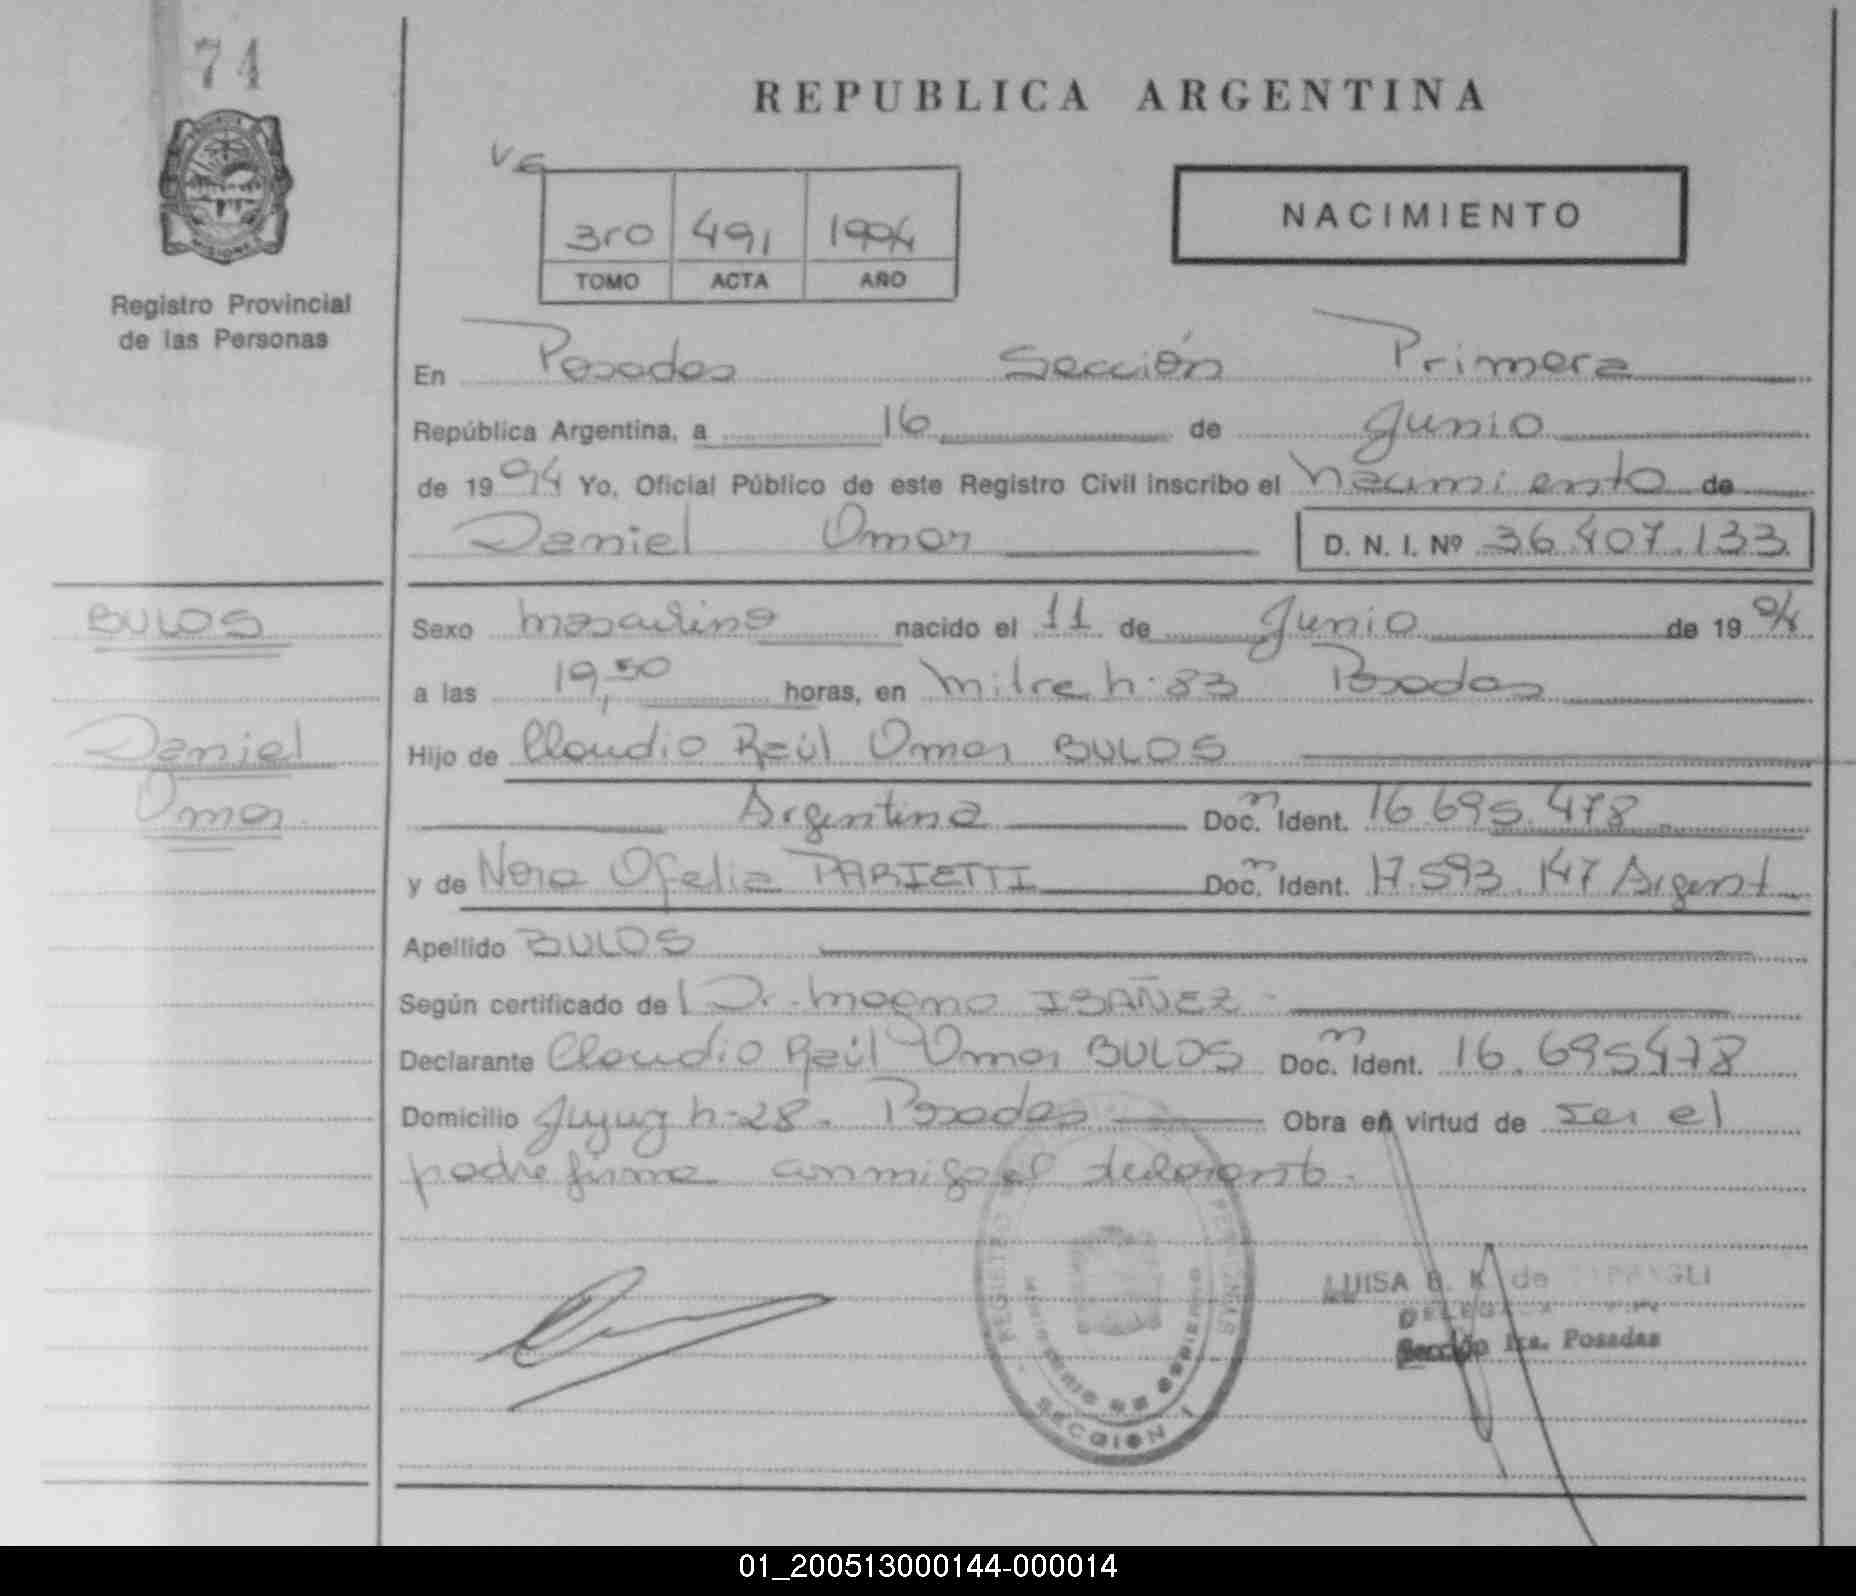 74
REPUBLICA ARGENTINA
3ro 491 1994
TOMO ACTA AÑO
NACIMIENTO
Registro Provincial
de las Personas
En Posadas Sección Primera
República Argentina, a 16 de Junio
de 1994 Yo, Oficial Público de este Registro Civil inscribo el nacimiento de
Daniel Omar D. N. I. Nº 36.407.133
BULOS
Daniel
Omar
Sexo masculino nacido el 11 de Junio de 1994
a las 19,50 horas, en Mitre h. 83 Posadas
Hijo de Claudio Raúl Omar BULOS
Argentina Doc. Ident. 16.695.478
y de Nora Ofelia PARIETTI Doc. Ident. 17.593.147 Argent
Apellido BULOS
Según certificado de Dr. Magno IBAÑEZ
Declarante Claudio Raúl Omar BULOS Doc. Ident. 16.695478
Domicilio Jujuy h-28. Posadas Obra en virtud de ser el
padre firma conmigo el declarante.
LUISA B. K. de
Sección 1ra. Posadas
REGISTRO
SECCION 1
01_200513000144-000014